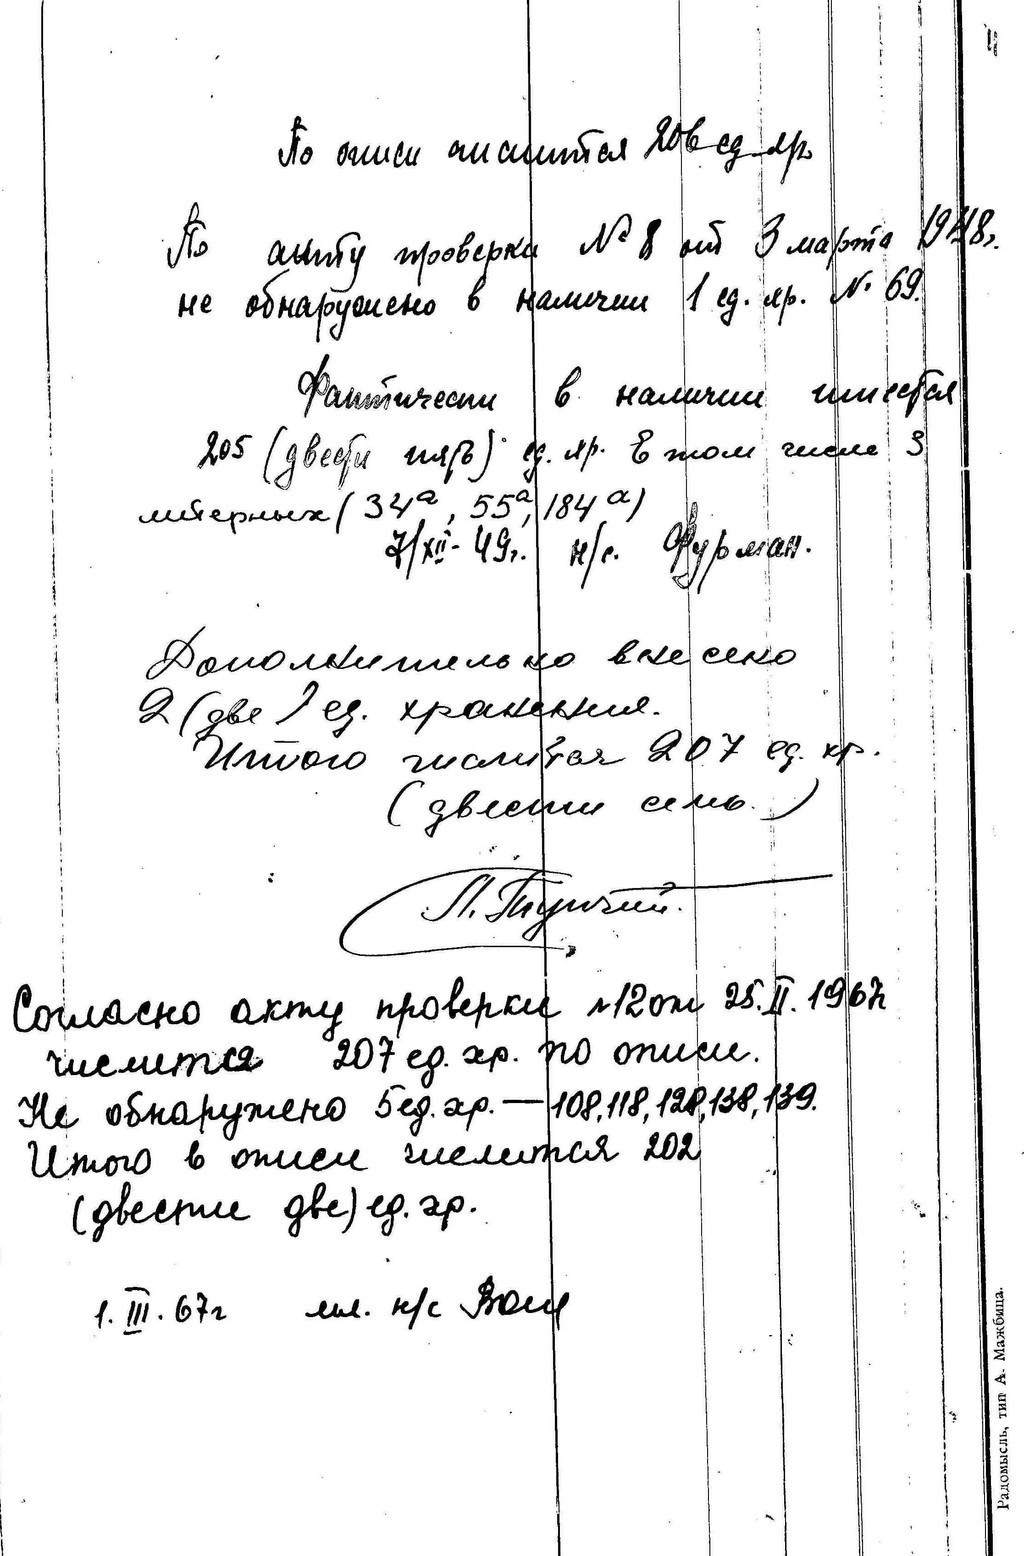 По описи числится 206 ед. хр.
По акту проверки № 8 от 3 марта 1948г.
не обнаружено в наличии 1 ед. хр. № 69.
Фактически в наличии имеется
205 (двести пять) ед. хр. В том числе 3
литерных (34а, 55а, 184а)
7/XII-49г. н/с. Фурман.
Дополнительно внесено
2 (две) ед. хранения.
Итого числится 207 ед. хр.
(двести семь.)
Согласно акту проверки №12 от 25.II.1967г
числится 207 ед. хр. по описи.
Не обнаружено 5 ед. хр. — 108, 118, 128, 138, 139.
Итого в описи числится 202
(двести две) ед. хр.
1. III. 67г мл. н/с
Радомысль, тип. А. Мажбица.